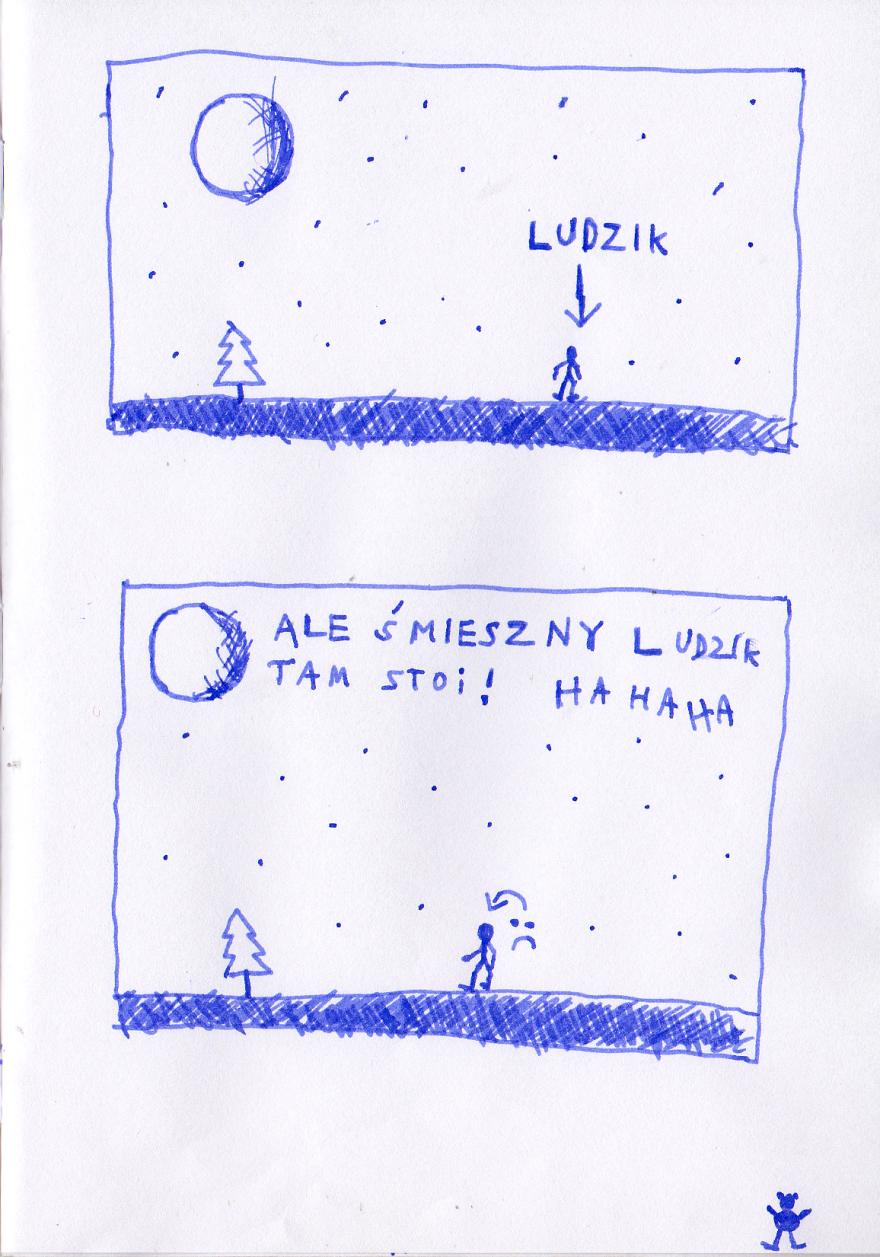 LUDZIK
ALE ŚMIESZNY LUDZIK
TAM STOi! HA HA HA